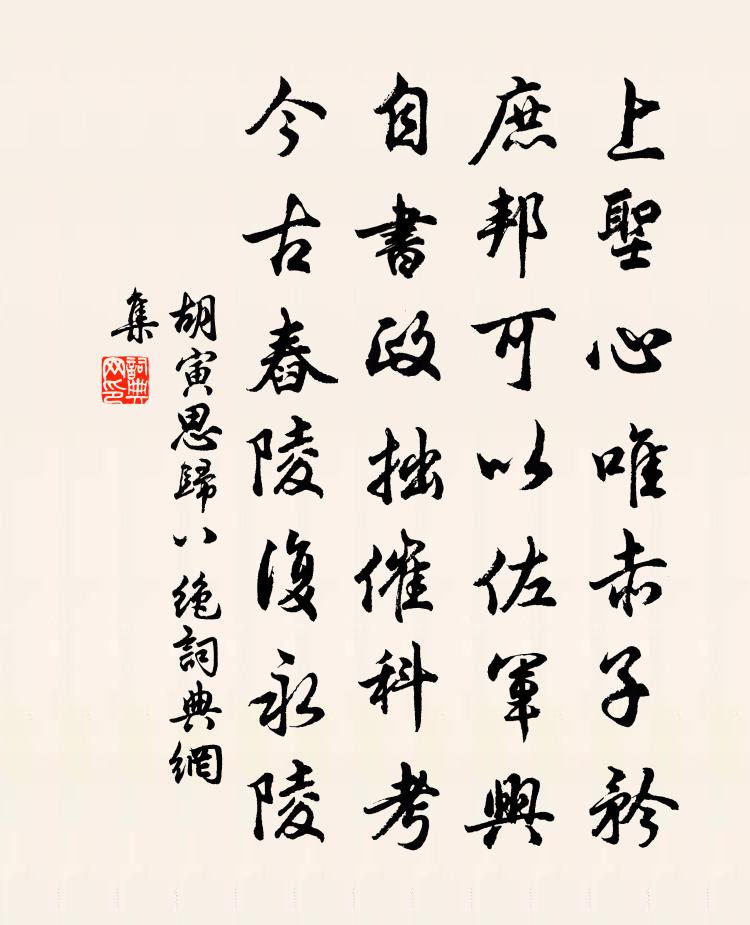 上聖心唯赤子矜
庶邦可以佐軍興
自書政拙催科考
今古舂陵復永陵
胡寅思歸八絶詞典網
集
詞典網印